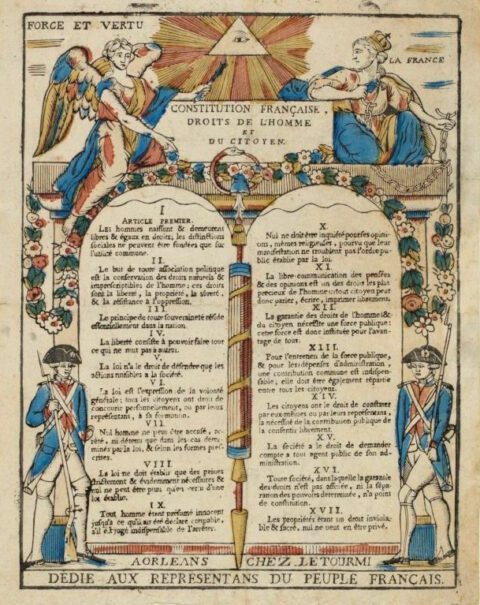 FORCE ET VERTU
LA FRANCE
CONSTITUTION FRANÇAISE,
DROITS DE L'HOMME
ET
DU CITOYEN.
I
ARTICLE PREMIER.
Les hommes naissent & demeurent
libres & égaux en droits, les distinctions
sociales ne peuvent être fondées que sur
l'utilité commune.
II.
Le but de toute association politique
est la conservation des droits naturels &
imprescriptibles de l'homme; ces droits
sont la liberté, la propriété, la sûreté,
& la résistance à l'oppression.
III.
Le principe de toute souveraineté réside
essentiellement dans la nation.
IV.
La liberté consiste à pouvoir faire tout
ce qui ne nuit pas à autrui.
V.
La loi n'a le droit de défendre que les
actions nuisibles à la société.
VI.
La loi est l'expression de la volonté
générale; tous les citoyens ont droit de
concourir personnellement, ou par leurs
représentans, à sa formation.
VII.
Nul homme ne peut être accusé, arrêté,
ni détenu que dans les cas déterminés
par la loi, & selon les formes prescrites.
VIII
La loi ne doit établir que des peines
strictement & évidemment nécessaires &
nul ne peut être puni qu'en vertu d'une
loi établie.
IX.
Tout homme étant présumé innocent
jusqu'à ce qu'il ait été déclaré coupable,
s'il est jugé indispensable de l'arrêter.
Nul ne doit être inquiété pour ses opinions,
mêmes religieuses, pourvu que leur
manifestation ne troublent pas l'ordre public
établie par la loi.
XI.
La libre communication des pensées
& des opinions est un des droits les plus
précieux de l'homme: tout citoyen peut
donc parler, écrire, imprimer librement.
XII.
La garantie des droits de l'homme &
du citoyen nécessite une force publique:
cette force est donc instituée pour l'avantage
de tous.
XIII.
Pour l'entretien de la force publique,
& pour les dépenses d'administration,
une contribution commune est indispensable;
elle doit être également répartie
entre tous les citoyens.
XIV.
Les citoyens ont le droit de constater
par eux mêmes ou par leurs représentans,
la nécessité de la contribution publique de
la consentir librement.
XV.
La société a le droit de demander
compte a tout agent public de son
administration.
XVI.
Toute société, dans laquelle la garantie
des droits n'est pas assurée, ni la séparation
des pouvoirs déterminée, n'a point
de constitution.
XVII.
Les propriétés étant un droit inviolable
& sacré, nul ne peut en être privé.
A ORLEANS CHEZ LETOURMI
DEDIE AUX REPRESENTANS DU PEUPLE FRANÇAIS.